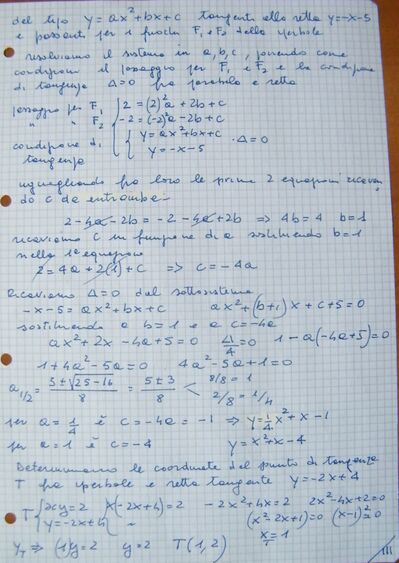 del tipo y=ax²+bx+c tangenti alla retta y=-x-5
e passanti per i fuochi F₁ e F₂ della iperbole
risolviamo il sistema in a,b,c, ponendo come
condizioni il passaggio per F₁ e F₂ e la condizione
di tangenza Δ=0 fra parabola e retta
passaggio per F₁ { 2=(2)²a+2b+c
" " F₂ { -2=(-2)²a-2b+c
condizione di tangenza { y=ax²+bx+c
y=-x-5 · Δ=0
uguagliando fra loro le prime 2 equazioni ricavan
do c da entrambe-
2-4a-2b=-2-4a+2b ⇒ 4b=4 b=1
ricaviamo c in funzione di a sostituendo b=1
nella 1ª equazione
2=4a+2(1)+c ⇒ c=-4a
Ricaviamo Δ=0 dal sottosistema
-x-5=ax²+bx+c ax²+(b+1)x+c+5=0
sostituendo a b=1 e a c=-4a
ax²+2x-4a+5=0 Δ/4=0 1-a(-4a+5)=0
1+4a²-5a=0 4a²-5a+1=0
a₁/₂ = 5±√25-16 / 8 = 5±3 / 8 < 8/8=1
2/8=1/4
per a=1/4 è c=-4a=-1 ⇒ y=1/4x²+x-1
per a=1 è c=-4 y=x²+x-4
Determiniamo le coordinate del punto di tangenza
T fra iperbole e retta tangente y=-2x+4
T { xy=2 x(-2x+4)=2 -2x²+4x=2 2x²-4x+2=0
y=-2x+4 " (x²-2x+1)=0 (x-1)²=0
x_T=1
y_T ⇒ (1)y=2 y=2 T(1,2)
III